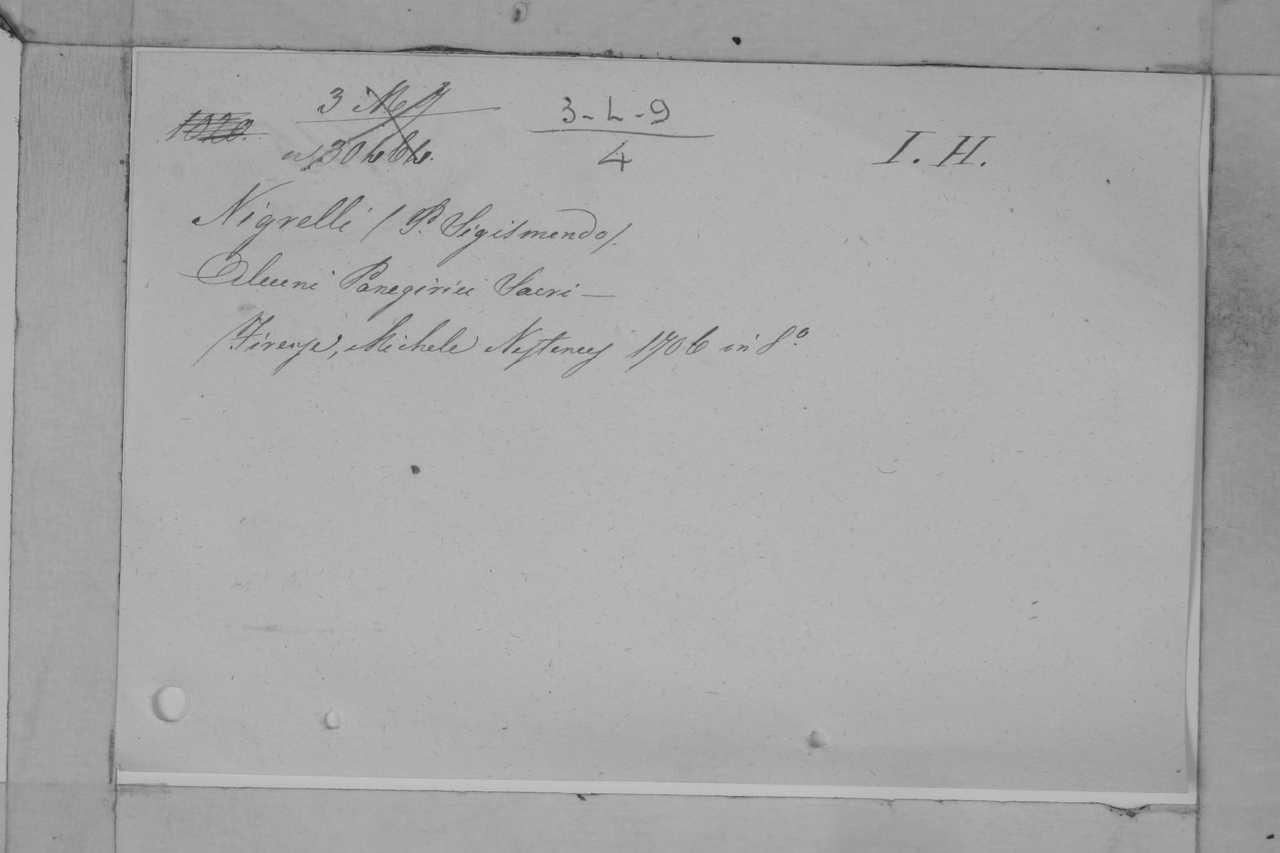 3 3-L-9 I. H.
4
Nigrelli (P. Sigismondo).
Alcuni Panegirici Sacri —
Firenze, Michele Nestenus 1706 in 8.º